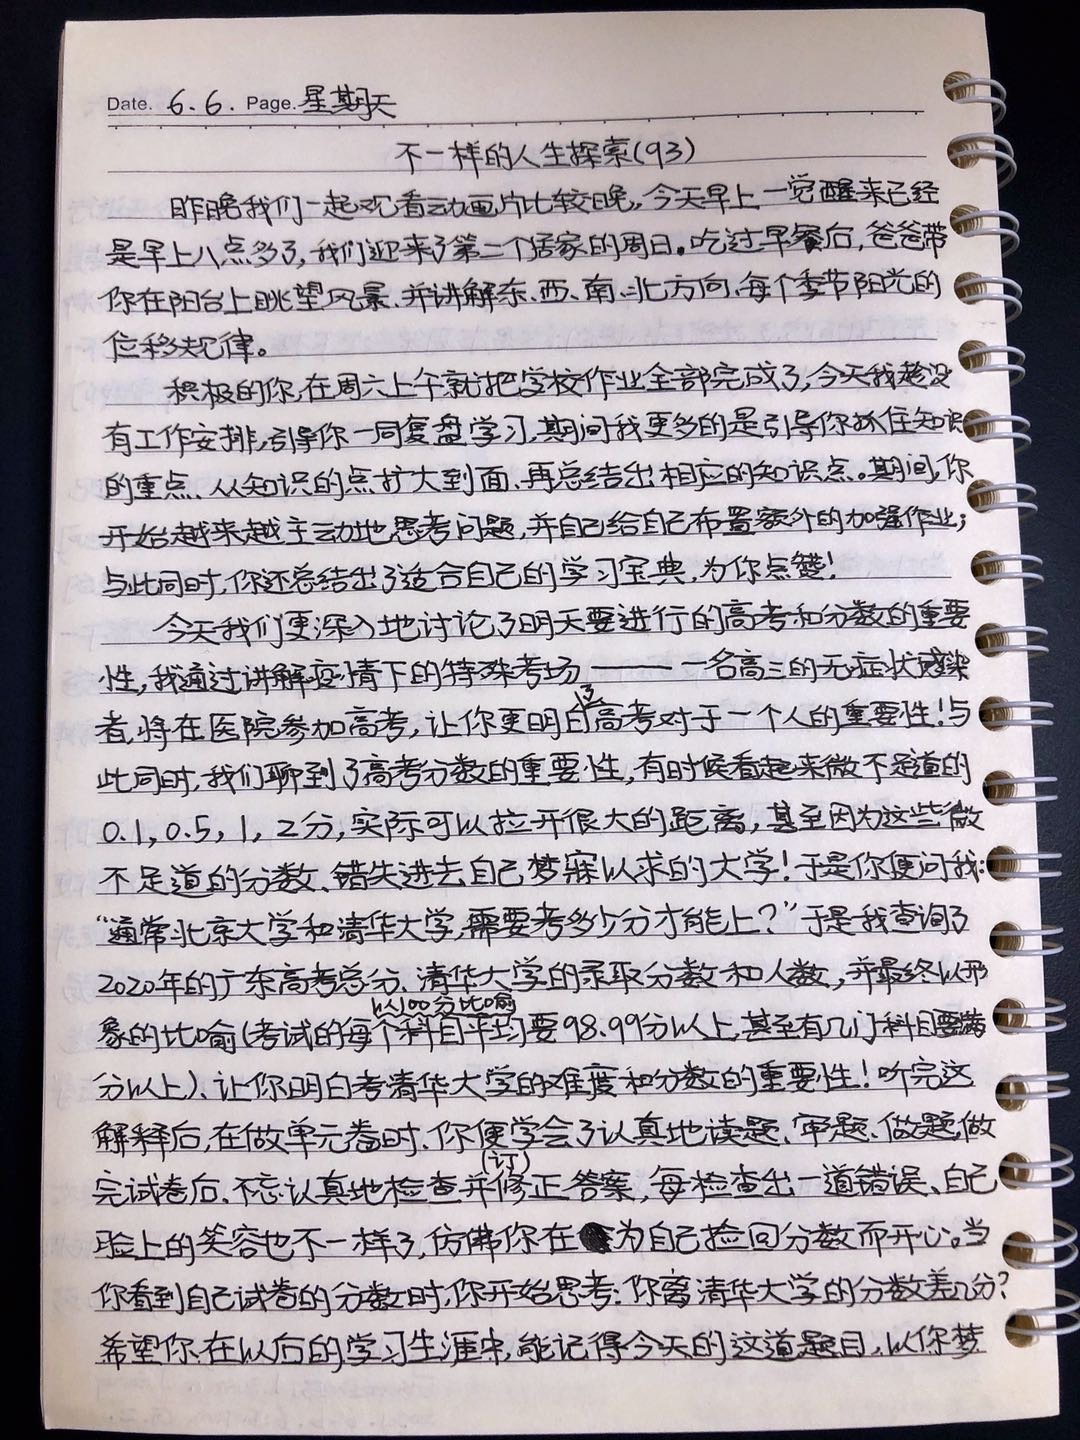 Date. 6.6. Page. 星期天
不一样的人生探索(93)
昨晚我们一起观看动画片比较晚，今天早上一觉醒来已经
是早上八点多了，我们迎来了第二个居家的周日。吃过早餐后，爸爸带
你在阳台上眺望风景、并讲解东、西、南、北方向、每个季节阳光的
位移规律。
积极的你，在周六上午就把学校作业全部完成了，今天我趁没
有工作安排，引导你一同复盘学习，期间我更多的是引导你抓住知识
的重点、从知识的点扩大到面、再总结出相应的知识点。期间，你
开始越来越主动地思考问题，并自己给自己布置额外的加强作业；
与此同时，你还总结出了适合自己的学习宝典，为你点赞！
今天我们更深入地讨论了明天要进行的高考和分数的重要
性，我通过讲解疫情下的特殊考场——一名高三的无症状感染
者，将在医院参加高考，让你更明白了高考对于一个人的重要性！与
此同时，我们聊到了高考分数的重要性，有时候看起来微不足道的
0.1，0.5，1，2分，实际可以拉开很大的距离，甚至因为这些微
不足道的分数、错失进去自己梦寐以求的大学！于是你便问我：
“通常北京大学和清华大学，需要考多少分才能上？”于是我查询了
2020年的广东高考总分、清华大学的录取分数和人数，并最终以形
以100分比喻
象的比喻(考试的每个科目平均要98.99分以上，甚至有几门科目要满
分以上)、让你明白考清华大学的难度和分数的重要性！听完这
解释后，在做单元卷时、你便学会了认真地读题、审题、做题，做
完试卷后、不忘认真地检查并修(订)正答案，每检查出一道错误、自己
脸上的笑容也不一样了，仿佛你在为自己捡回分数而开心。当
你看到自己试卷的分数时，你开始思考：你离清华大学的分数差几分？
希望你，在以后的学习生涯中，能记得今天的这道题目，以你梦